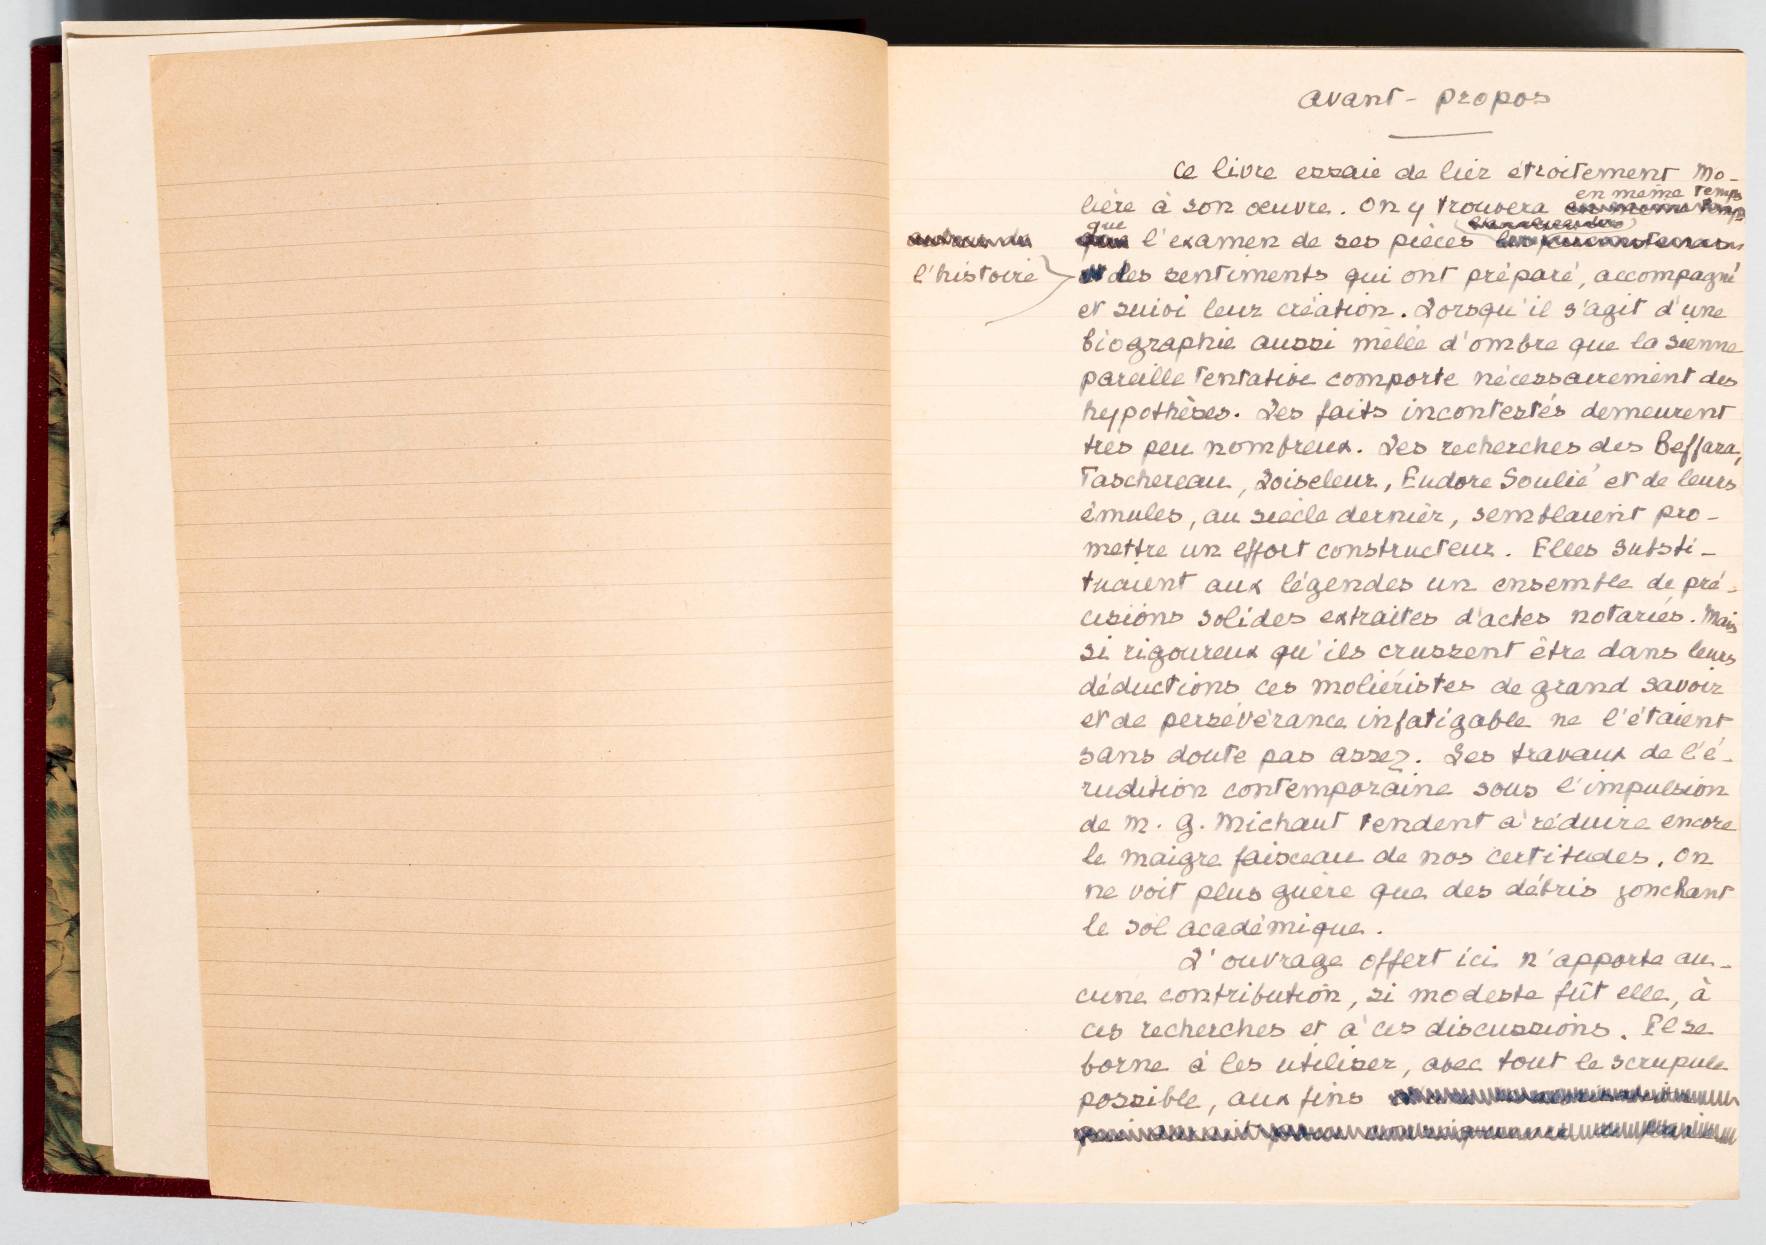 avant-propos
Ce livre essaie de lier étroitement Mo-
lière à son œuvre. On y trouvera en même temps
que l'examen de ses pièces
l'histoire
des sentiments qui ont préparé, accompagné
et suivi leur création. Lorsqu'il s'agit d'une
biographie aussi mêlée d'ombre que la sienne
pareille tentative comporte nécessairement des
hypothèses. Les faits incontestés demeurent
très peu nombreux. Les recherches des Beffara,
Taschereau, Loiseleur, Eudore Soulié et de leurs
émules, au siècle dernier, semblaient pro-
mettre un effort constructeur. Elles substi-
tuaient aux légendes un ensemble de pré-
cisions solides extraites d'actes notariés. Mais
si rigoureux qu'ils crussent être dans leurs
déductions ces moliéristes de grand savoir
et de persévérance infatigable ne l'étaient
sans doute pas assez. Les travaux de l'é-
rudition contemporaine sous l'impulsion
de M. G. Michaut tendent à réduire encore
le maigre faisceau de nos certitudes. On
ne voit plus guère que des débris jonchant
le sol académique.
L'ouvrage offert ici n'apporte au-
cune contribution, si modeste fût elle, à
ces recherches et à ces discussions. Il se
borne à les utiliser, avec tout le scrupule
possible, aux fins